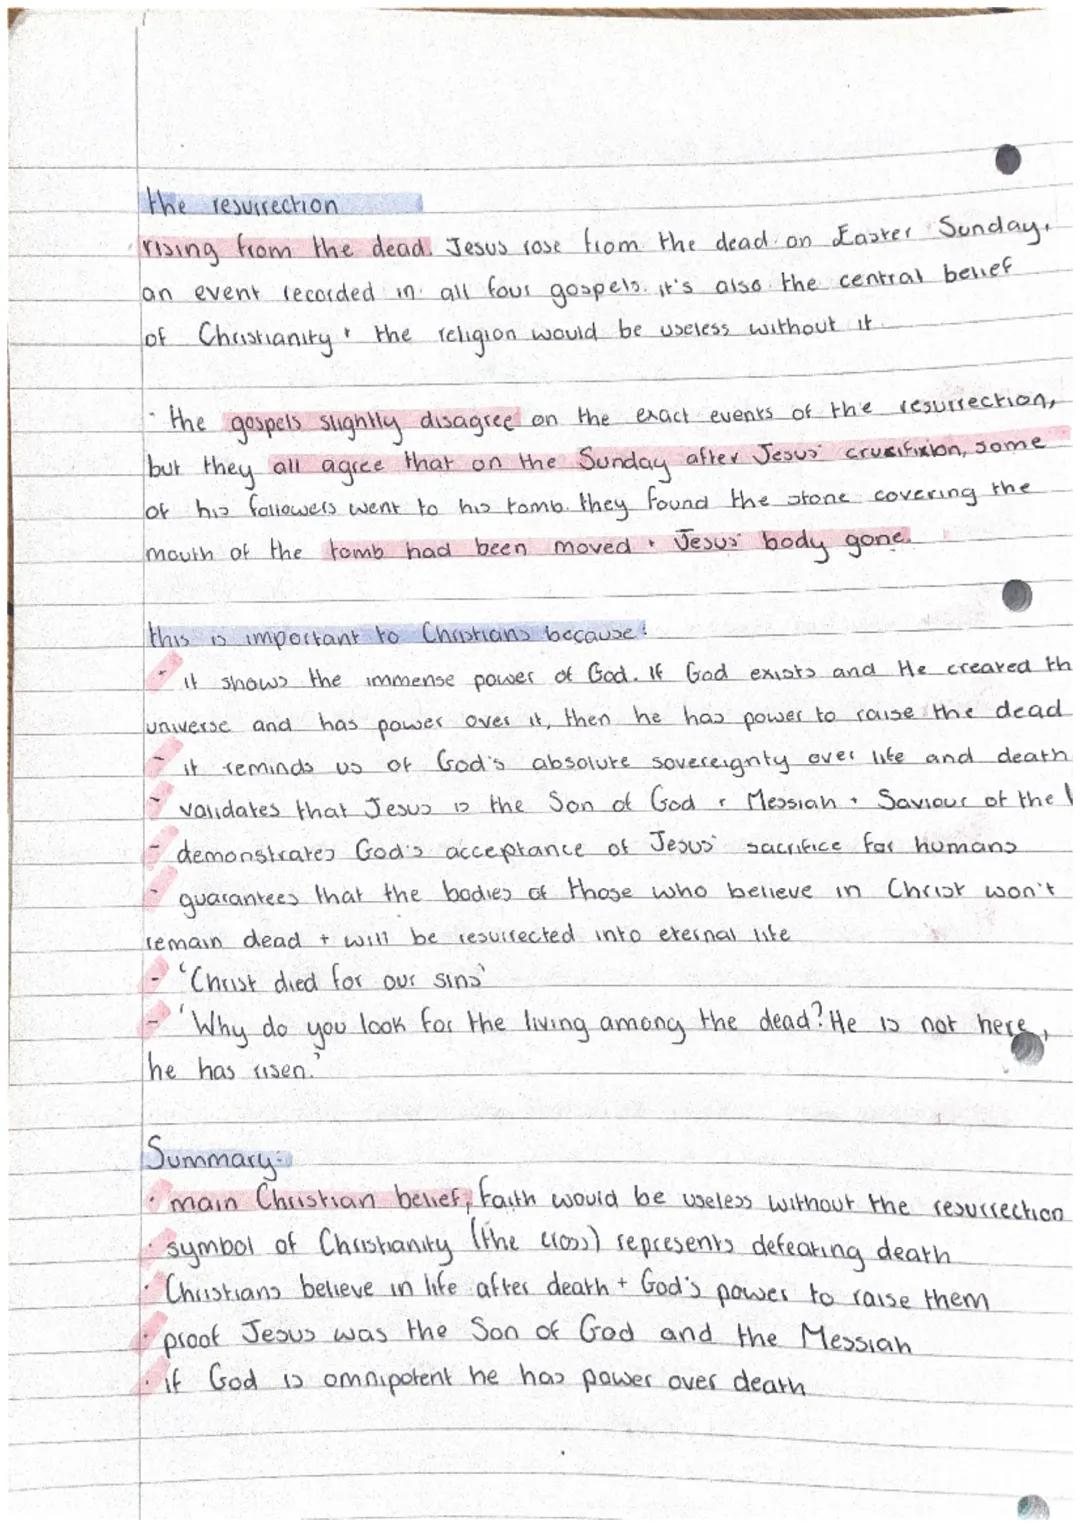 the resurrection
rising from the dead. Jesus rose from the dead on Easter Sunday,
an event recorded in all four gospels. it's also the central belief
of Christianity + the religion would be useless without it.
· the gospels slightly disagree on the exact events of the resurrection,
but they all agree that on the Sunday after Jesus' crusifixion, some
of his followers went to his tomb. they found the stone covering the
mouth of the tomb had been moved + Jesus' body gone.
this is important to Christians because:
- it shows the immense power of God. If God exists and He created th
universe and has power over it, then he has power to raise the dead
- it reminds us of God's absolute sovereignty over life and death
- validates that Jesus is the Son of God + Messiah + Saviour of the
- demonstrates God's acceptance of Jesus' sacrifice for humans
- guarantees that the bodies of those who believe in Christ won't
remain dead + will be resurrected into eternal life
- 'Christ died for our sins'
- 'Why do you look for the living among the dead? He is not here,
he has risen.'
Summary:
· main Christian belief, faith would be useless without the resurrection
· symbol of Christianity (the cross) represents defeating death
· Christians believe in life after death + God's power to raise them
· proof Jesus was the Son of God and the Messiah
· if God is omnipotent he has power over death